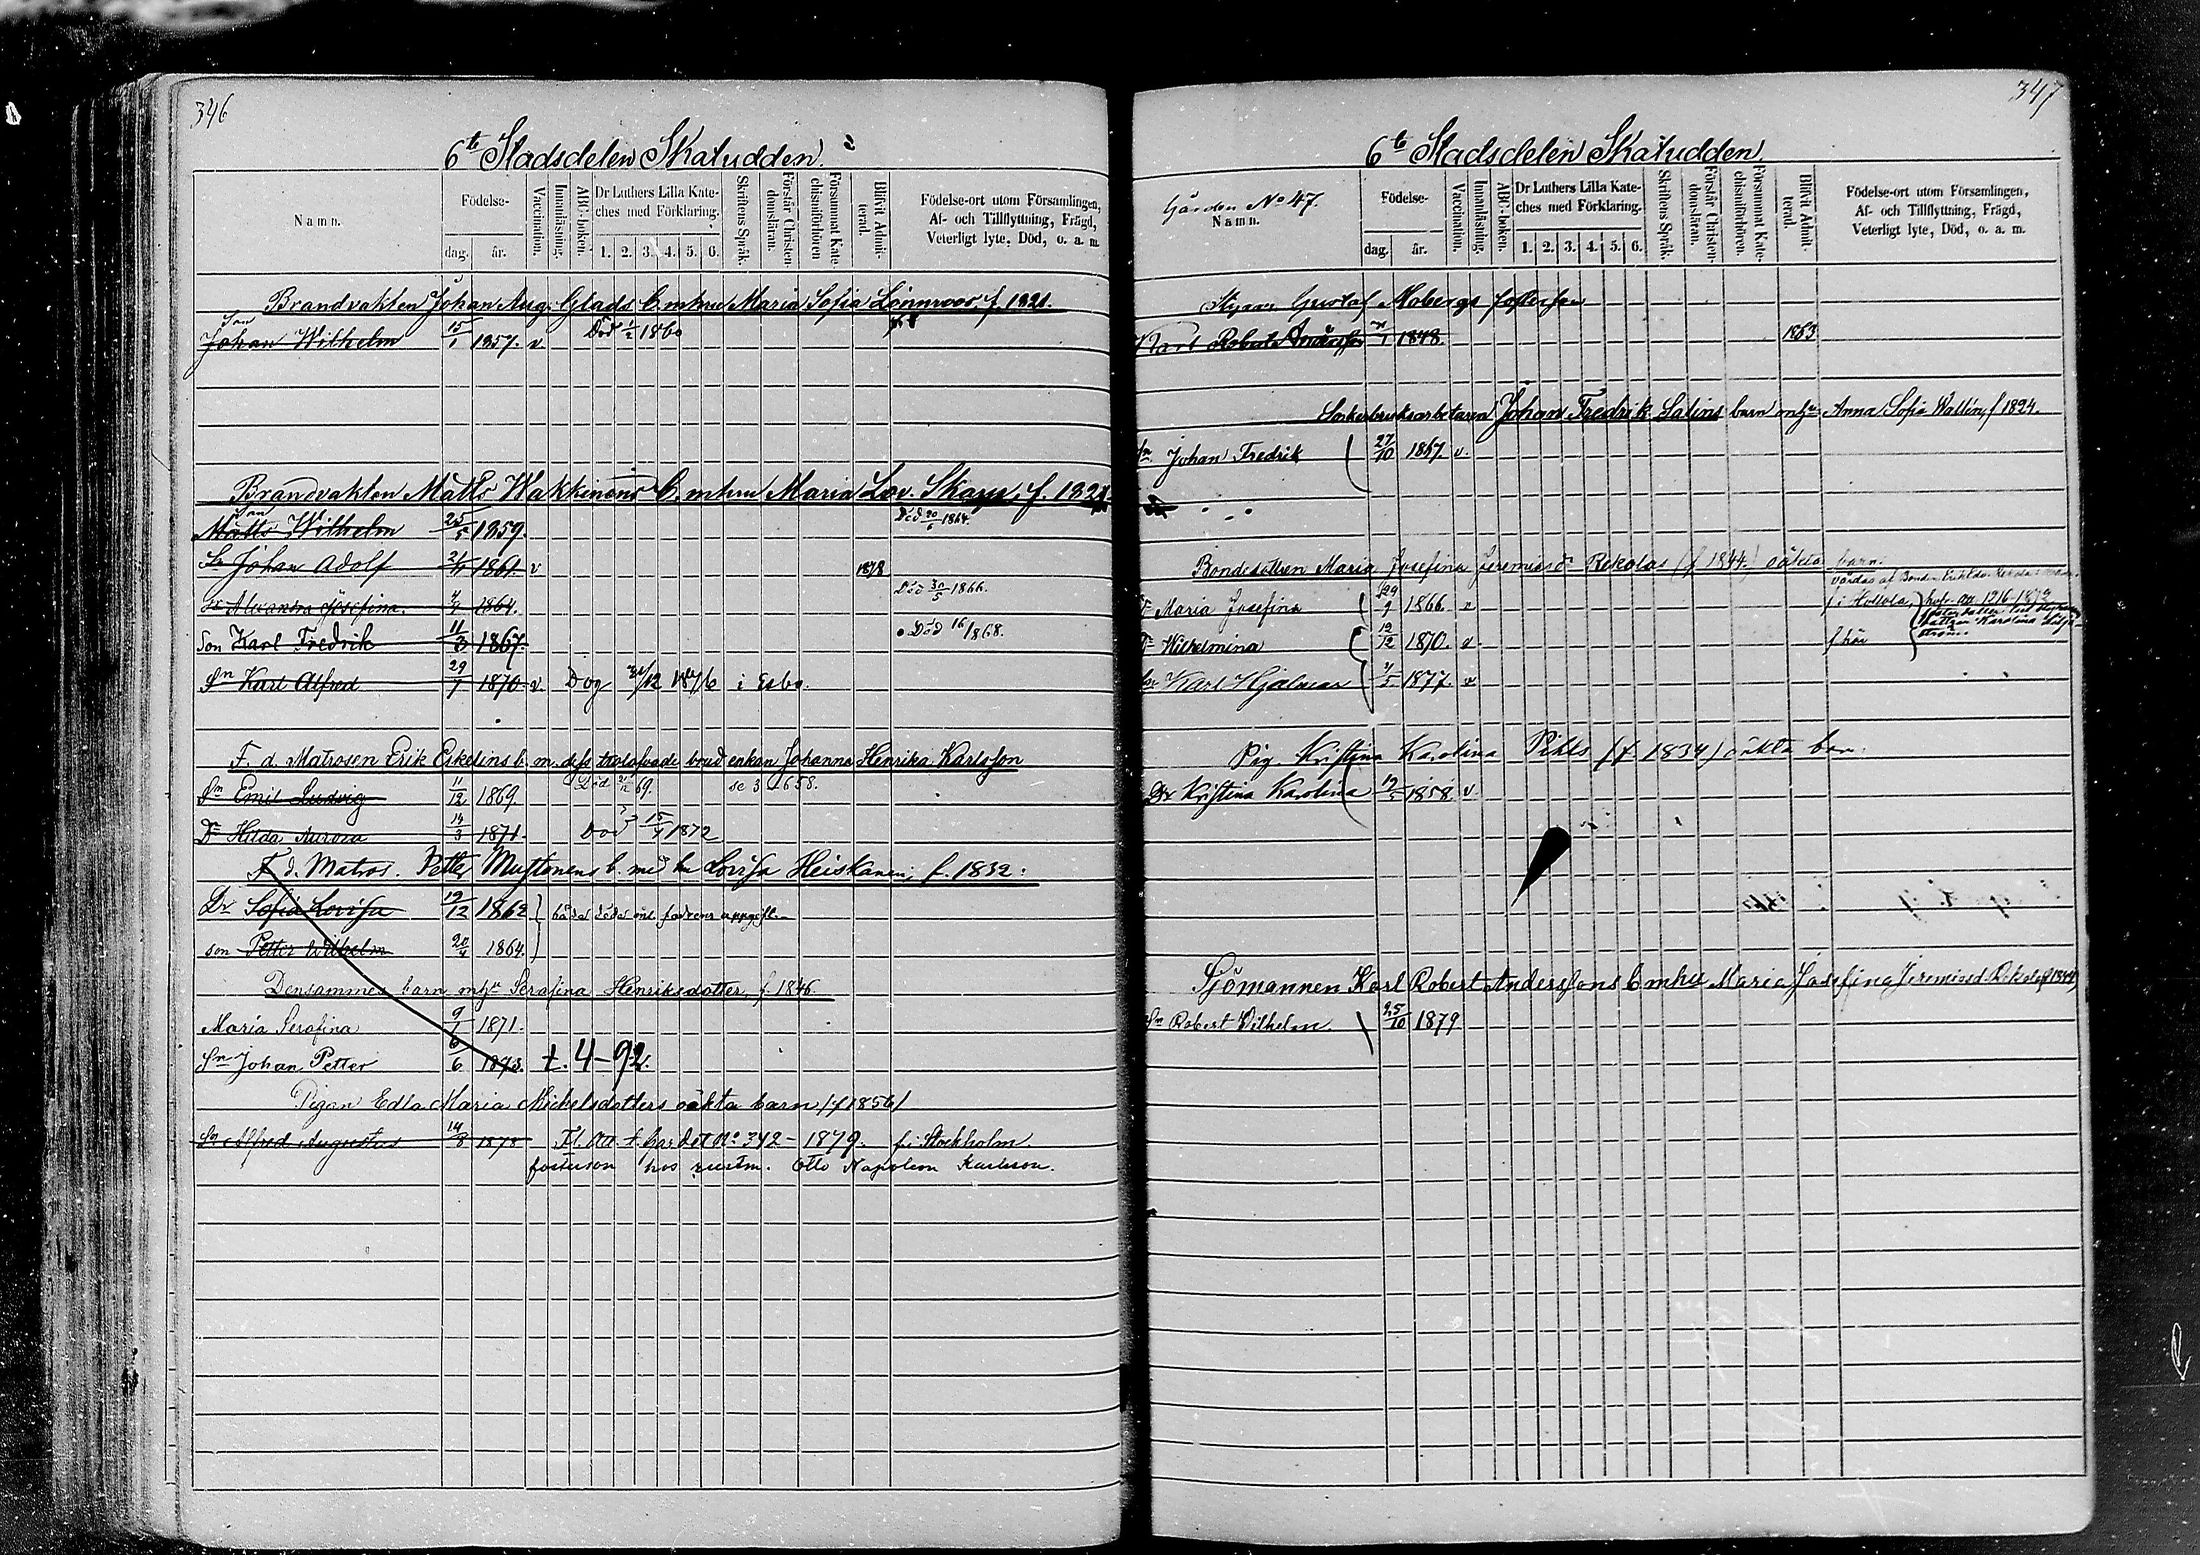 346
6te Stadsdelen Skatudden.
Namn.
Födelse-
dag. år.
Vaccination.
Innanläsning.
ABC-boken.
Dr Luthers Lilla Kate-
ches med Förklaring.
1. 2. 3. 4. 5. 6.
Skriftens Språk.
Förstår Christen-
domsläran.
Försummat Kate-
chismiförhören
Blifvit Admit-
terad.
Födelse-ort utom Församlingen,
Af- och Tillflyttning, Frägd,
Veterligt lyte, Död, o. a. m.
Brandvakten Johan Aug. Glads b. m hu Maria Sofia Lönnroos f. 1821.
Son
Johan Wilhelm 15/1 1857. v Död 1/2 1860
Brandvakten Matts Wakkinens b. m hu Maria Lov. Skogs f.
Son
Matts Wilhelm 25/5 1859. Död 20/6 1864.
Sn Johan Adolf 1861. v 1878
Dr Alexandra Josefina. 1864. Död 30/5 1866.
Son Karl Fredrik 11/3 1867. Död 16/ 1868.
Sn Karl Alfred 29/7 1870. v Dog /12 1876 i Esbo.
F. d. Matrosen Erik Eskelins b. m. dess trolofvade brud enkan Johanna Henrika Karlsson
Sn Emil Ludvig 11/12 1869. Död 69. se 3 1658.
Dr Hilda Aurora 14/3 1871. Död 15/4 1872
F. d. Matros. Petter Mustonens b. med hu Lovisa Heiskanen, f. 1832:
Dr Sofia Lovisa 19/12 1862 båda döda enl fadrens uppgift.
son Petter Wilhelm 20/4 1864.
Densammes barn m hu Serafina Henriksdotter, f. 1846
Maria Serafina 9/1 1871.
Sn Johan Petter 6/6 1873. t. 4-92.
Pigan Edla Maria Michelsdotters oäkta barn /f 1856/
Sn Alfred Augustus 14/8 1878 Fl. att. t. No 342 - 1879. f. i Stockholm
fosterson hos Otto Napoleon Karlsson.
347
6te Stadsdelen Skatudden
Gården No 47.
Namn.
Födelse-
dag. år.
Vaccination.
Innanläsning.
ABC-boken.
Dr Luthers Lilla Kate-
ches med Förklaring.
1. 2. 3. 4. 5. 6.
Skriftens Språk.
Förstår Christen-
domsläran.
Försummat Kate-
chismiförhören.
Blifvit Admit-
terad.
Födelse-ort utom Församlingen,
Af- och Tillflyttning, Frägd,
Veterligt lyte, Död, o. a. m.
Gustaf Mobergs fosterson
Karl Robert Andersson 1848. 1863
Sockerbruksarbetaren Johan Fredrik Salins barn m hu Anna Sofia Wallin, f 1824.
Sn Johan Fredrik 27/10 1857 v.
Bondedottren Maria Josefina Jeremiasdr Rekolas (f 1844.) oäkta barn.
Dr Maria Josefina 29/9 1866 v f i Hollola,
Dr Wilhelmina 19/12 1870. v f här
Sn Karl Hjalmar 1877. v
Pig. Kristina Karolina Pihls (f. 1834) oäkta bar.
Dr Kristina Karolina 1858 v
Sjömannen Karl Robert Anderssons b m hu Maria Josefina Jeremiasd Rekola (f 1844)
Sn Robert Vilhelm 25/10 1879